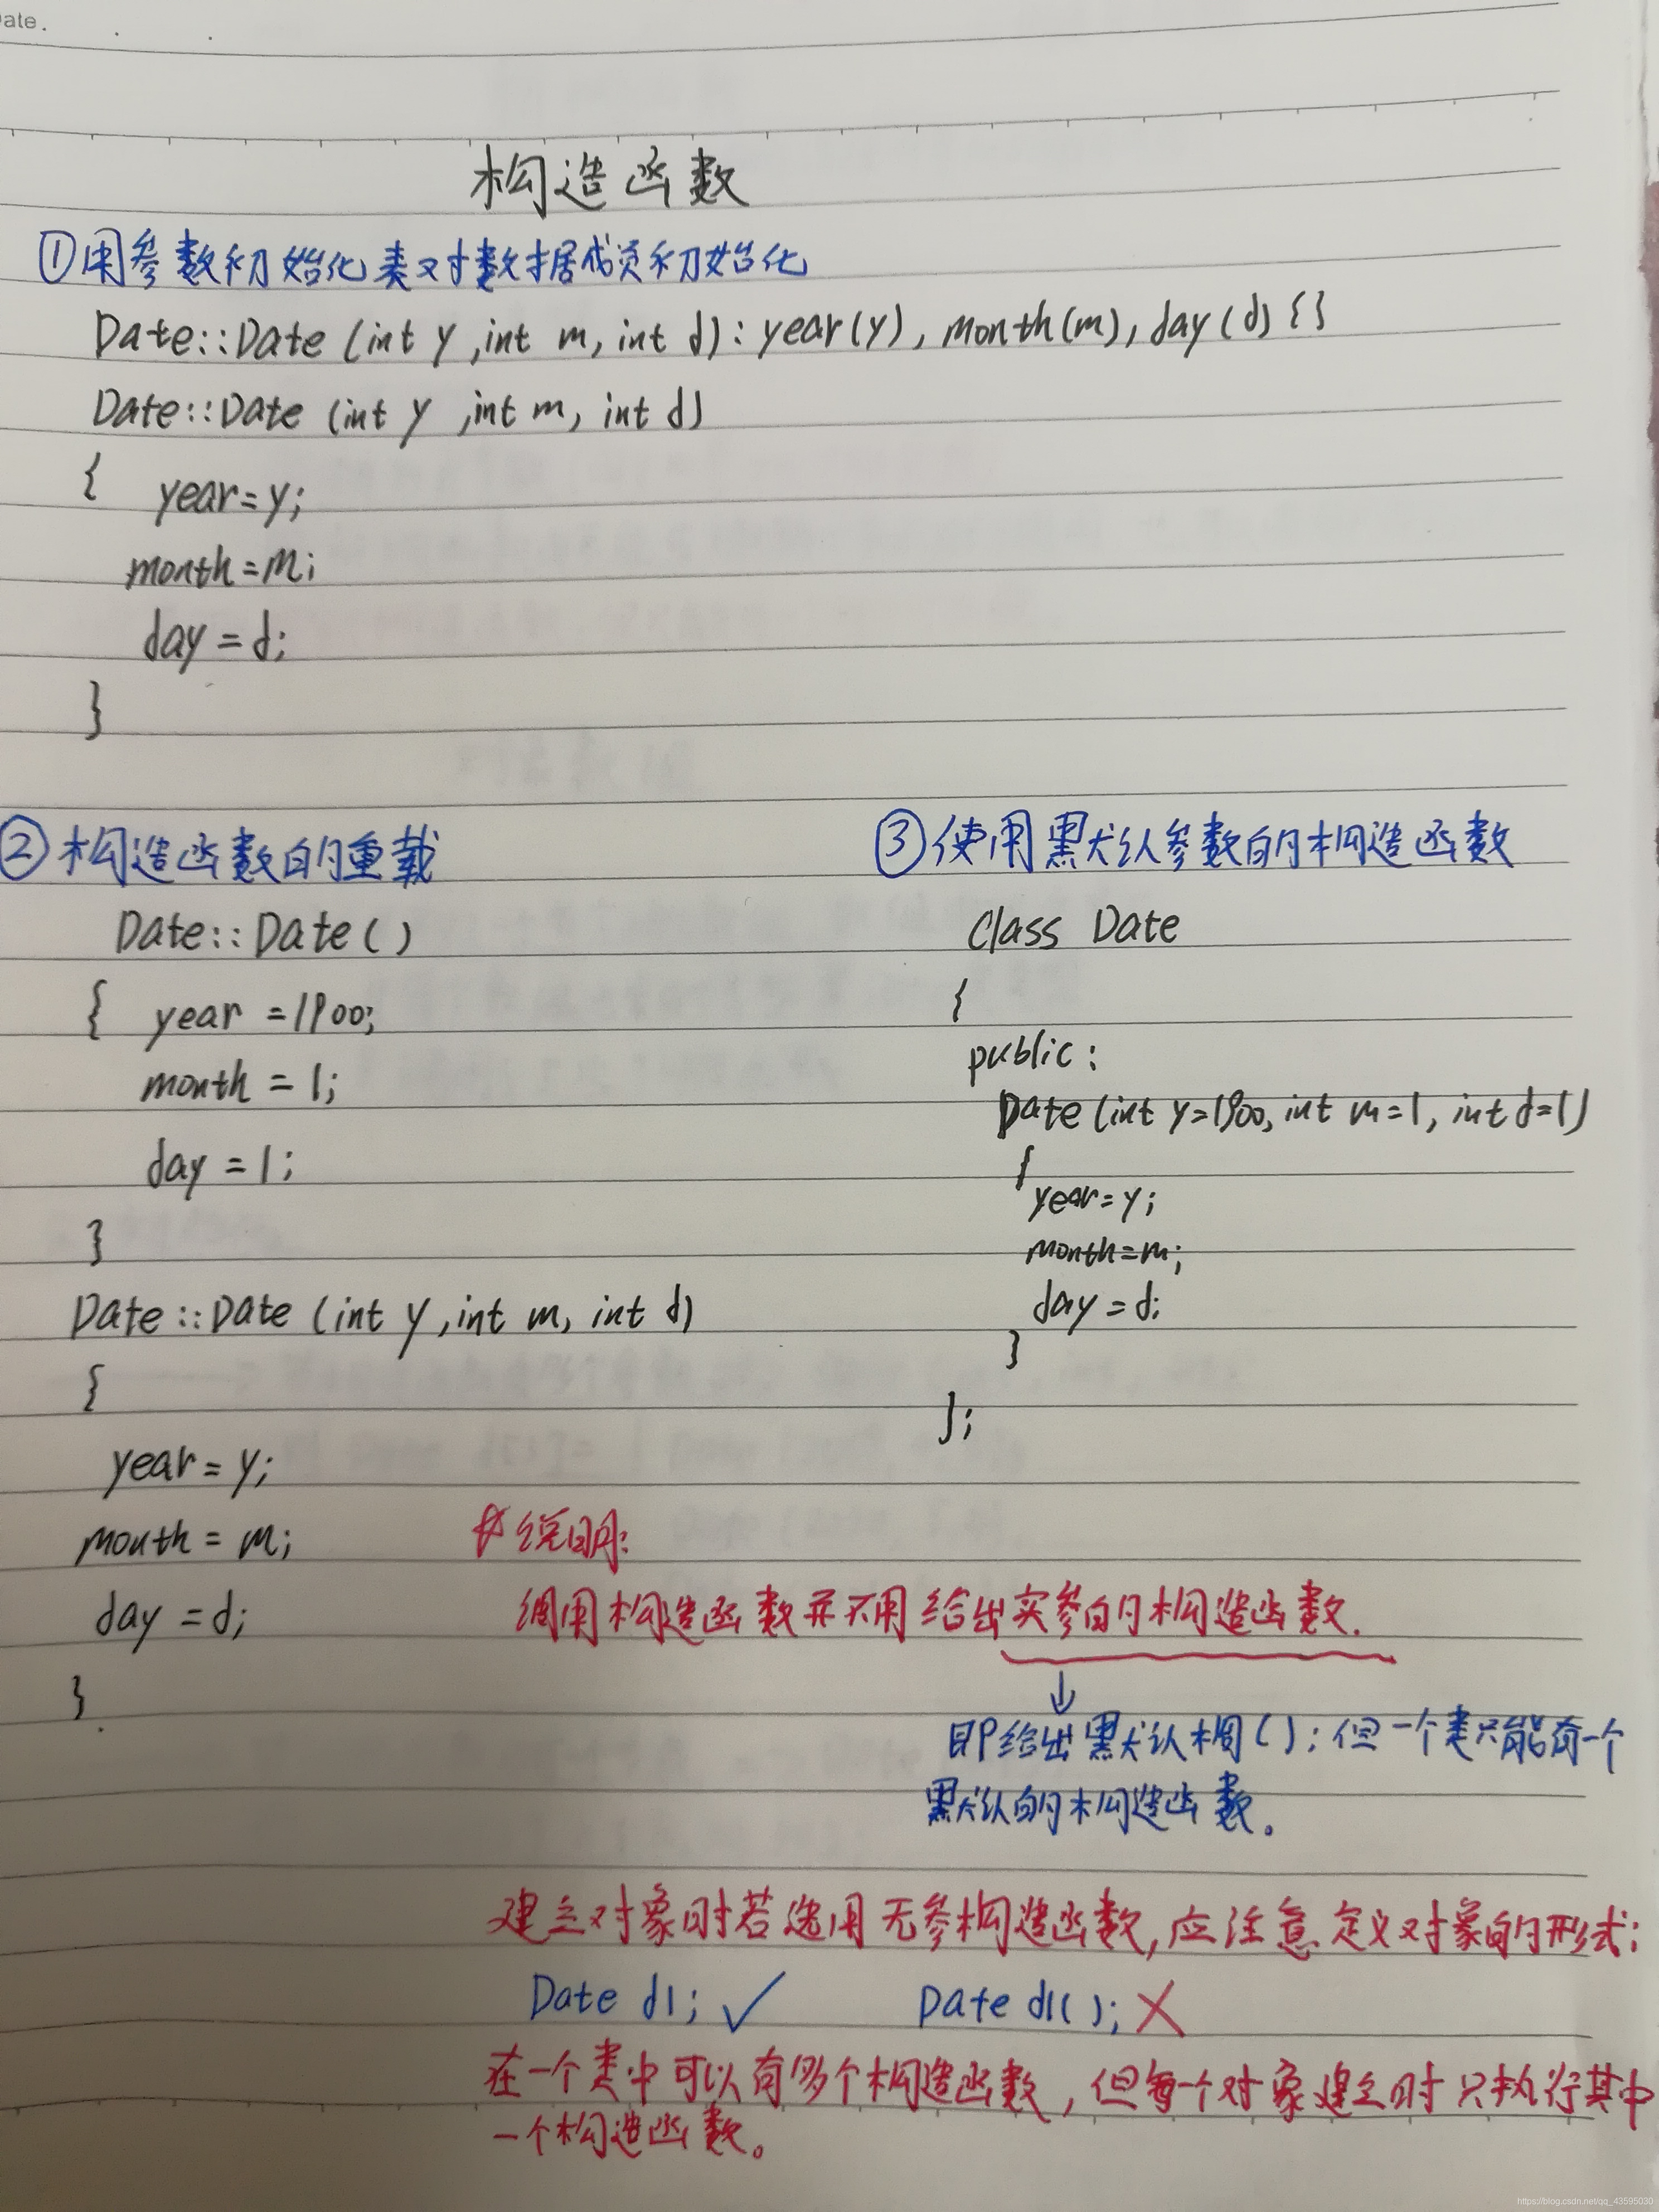 Date.
构造函数
①用参数初始化表对数据成员初始化
Date::Date (int y,int m, int d): year(y), month(m), day(d) {}
Date::Date (int y ,int m, int d)
{ year=y;
month=m;
day=d;
}
②构造函数的重载
Date::Date()
{ year=1900;
month=1;
day=1;
}
Date::Date (int y,int m, int d)
{
year=y;
month=m;
day=d;
}
③使用默认参数的构造函数
Class Date
{
public:
Date (int y=1900, int m=1, int d=1)
{
year=y;
month=m;
day=d;
}
};
说明:
调用构造函数并不用给出实参的构造函数.
↓
即给出默认构(); 但一个类只能有一个
默认的构造函数。
建立对象时若选用无参构造函数,应注意定义对象的形式:
Date d1; ✓ Date d1(); ✗
在一个类中可以有多个构造函数,但每一个对象建立时只执行其中
一个构造函数。
https://blog.csdn.net/qq_43595030